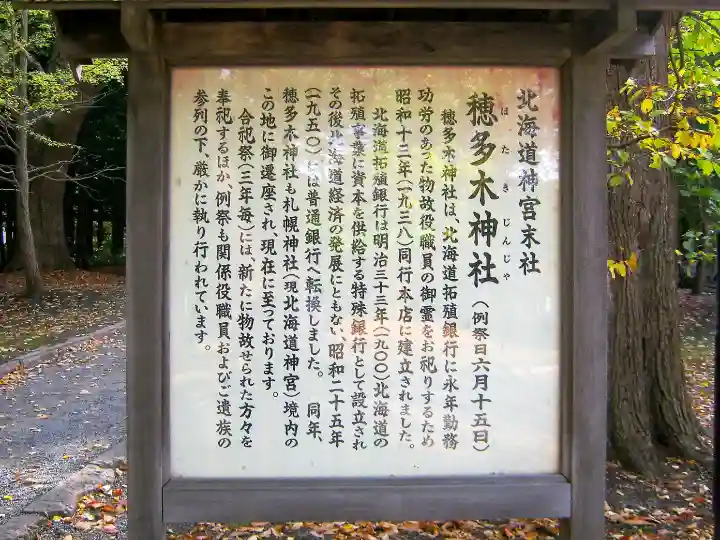 北海道神宮末社
穂多木神社(例祭日六月十五日)
ほたきじんじゃ
穂多木神社は、北海道拓殖銀行に永年勤務
功労のあった物故役職員の御霊をお祀りするため
昭和十三年(一九三八)同行本店に建立されました。
北海道拓殖銀行は明治三十三年(一九〇〇)北海道の
拓殖事業に資本を供給する特殊銀行として設立され
その後北海道経済の発展にともない、昭和二十五年
(一九五〇)には普通銀行へ転換しました。 同年、
穂多木神社も札幌神社(現北海道神宮)境内の
この地に御遷座され、現在に至っております。
合祀祭(三年毎)には、新たに物故せられた方々を
奉祀するほか、例祭も関係役職員およびご遺族の
参列の下、厳かに執り行われています。